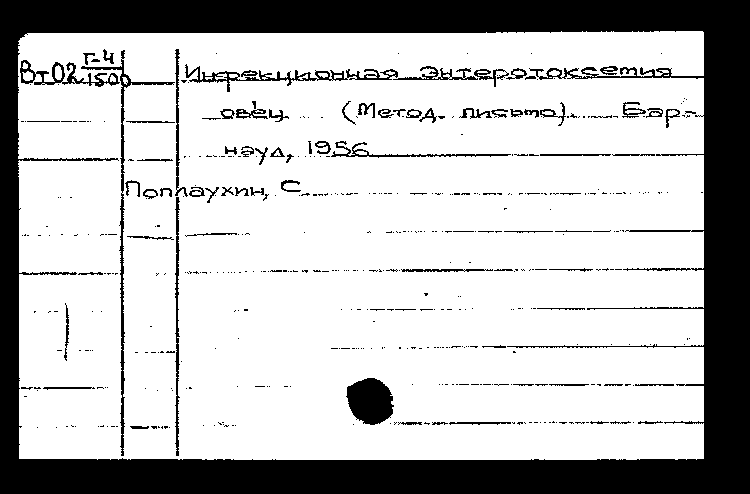 Г-4
Вт02 1500 Инфекционная энтеротоксемия
овец. (Метод. письмо). Бар-
наул, 1956
Поплаухин, С